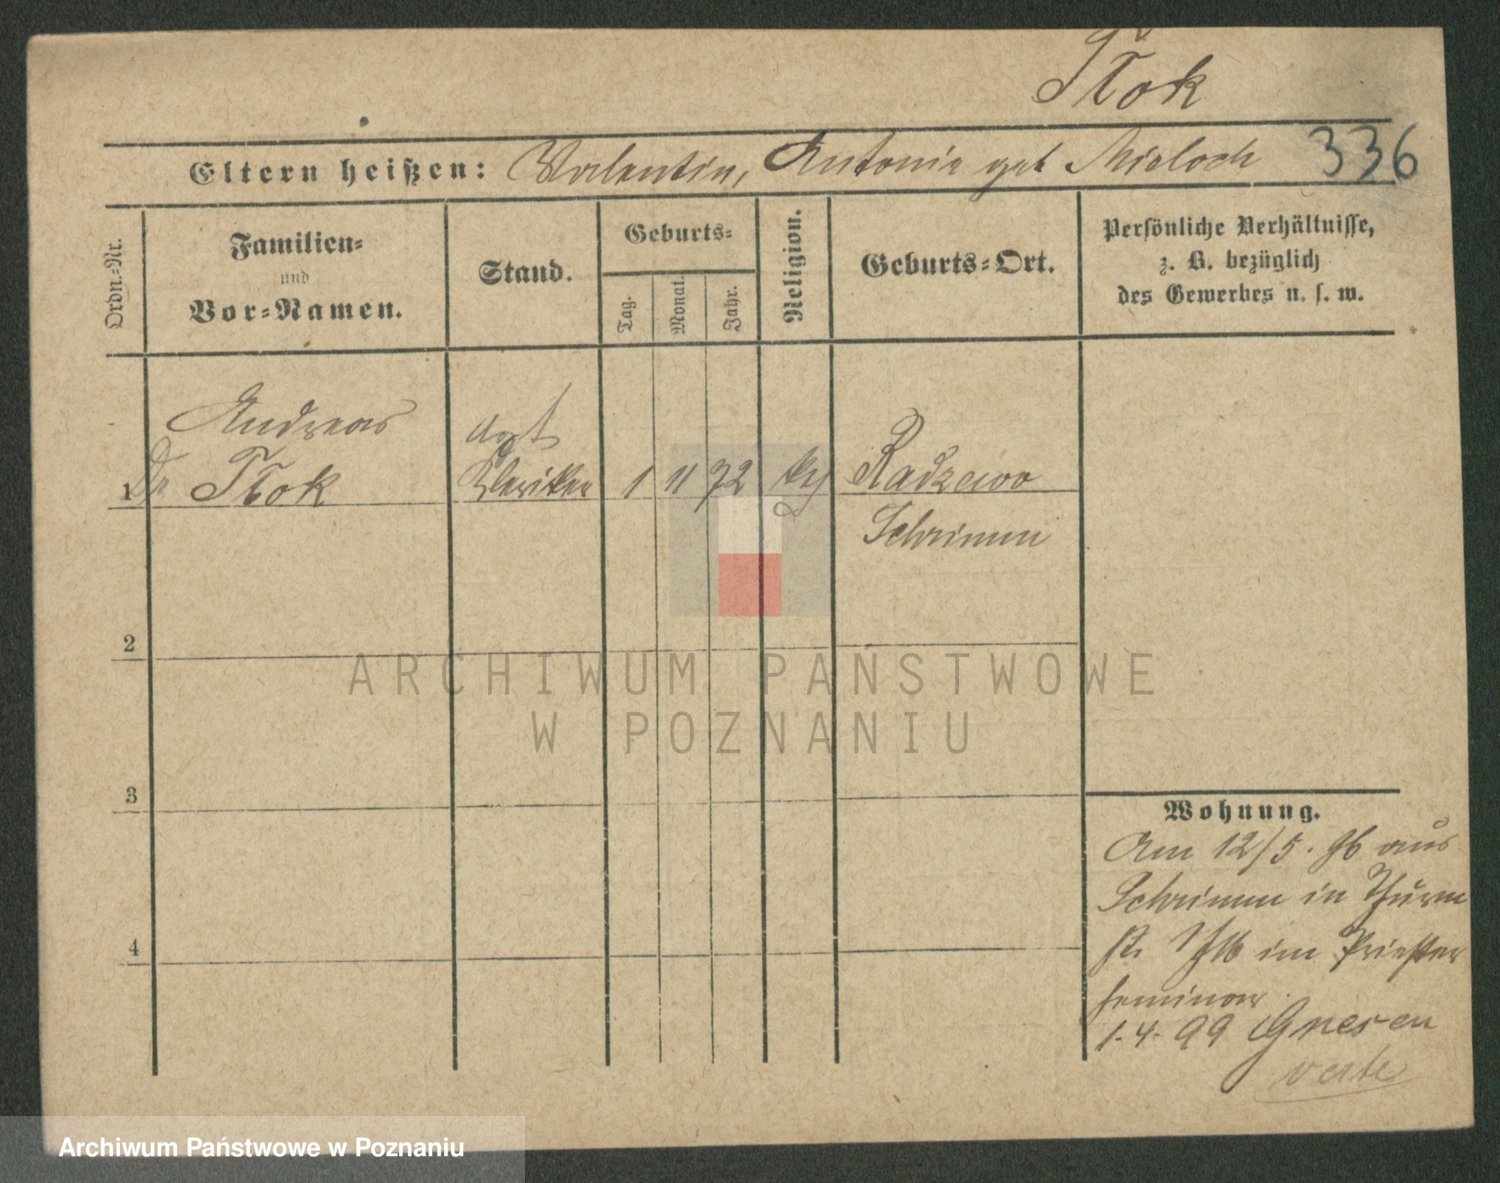 Tłok
Eltern heißen: Valentin, Antonie geb Mieloch 336
Ordn.-Nr.
Familien-
und
Vor-Namen.
Stand.
Geburts-
Tag.
Monat.
Jahr.
Religion.
Geburts-Ort.
Persönliche Verhältnisse,
z. B. bezüglich
des Gewerbes u. s. w.
Andreas
1 Dr Tłok
Kleriker
1 11 72
Radzewo
Schrimm
2
3
4
Wohnung.
Am 12/5. 96 aus
Schrimm in Thurm
st. im Priester
seminar
1.4.99 Gnesen
verte
ARCHIWUM PAŃSTWOWE
W POZNANIU
Archiwum Państwowe w Poznaniu